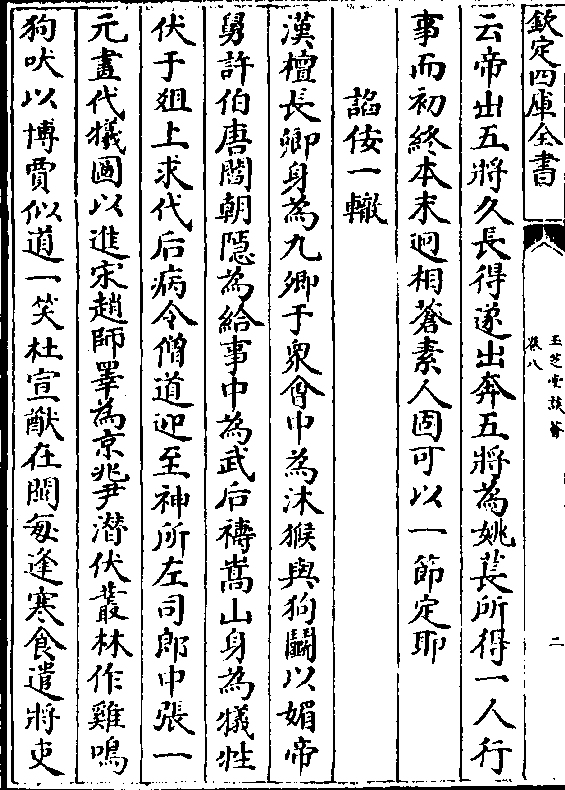 欽定四庫全書
玉芝堂談薈
卷八
二
云帝出五將久長得遂出奔五將為姚萇所得一人行
事而初終本末迥相蒼素人固可以一節定耶
諂佞一轍
漢檀長卿身為九卿于衆會中為沐猴與狗鬭以媚帝
舅許伯唐閻朝隱為給事中為武后禱嵩山身為犧牲
伏于俎上求代后病令僧道迎至神所左司郎中張一
元畫代犧圖以進宋趙師㚖為京兆尹潛伏叢林作雞鳴
狗吠以博賈似道一笑杜宣猷在閩每逢寒食遣將吏